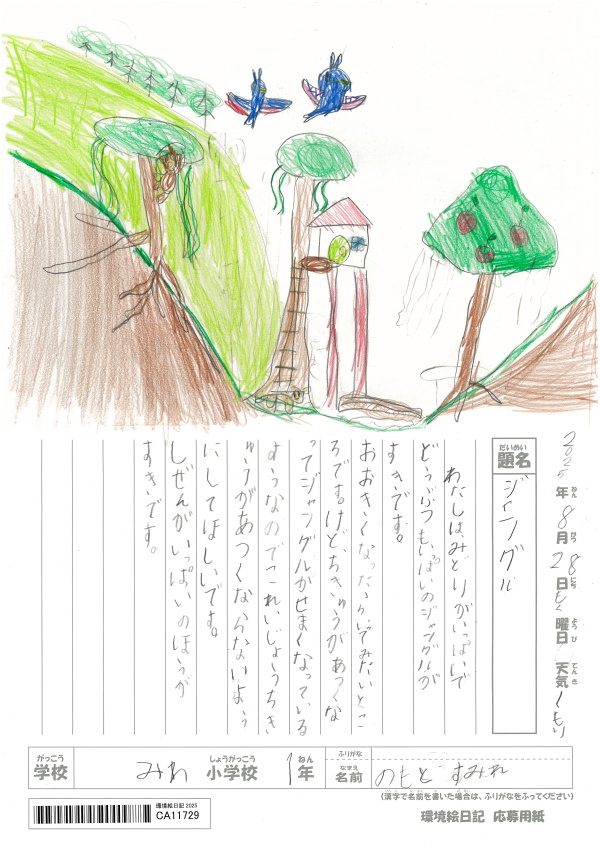 2025年ねん8月がつ28日にちもく曜日ようび 天気てんきくもり
題名だいめい
ジャングル
わたしは、みどりがいっぱいで
どうぶつもいっぱいのジャングルが
すきです。
おおきくなったらいってみたいとこ
ろです。けど、ちきゅうがあつくな
ってジャングルがせまくなっている
そうなのでこれいじょうちき
ゅうがあつくならないよう
にしてほしいです。
しぜんがいっぱいのほうが
すきです。
がっこう 学校 みわ しょうがっこう 小学校 1 ねん 年 ふりがな なまえ 名前 のもと すみれ
(漢字で名前を書いた場合は、ふりがなをふってください)
環境絵日記 2025
CA11729
環境絵日記 応募用紙